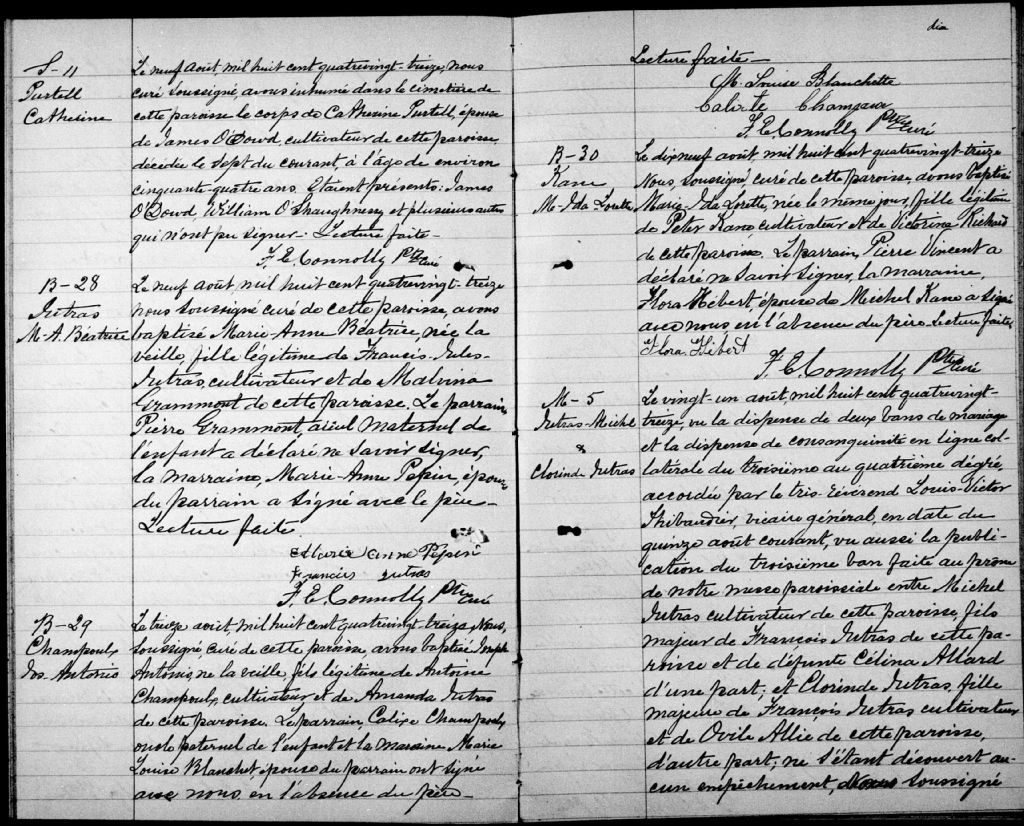 S-11
Purtell
Catherine
Le neuf août, mil huit cent quatrevingt-treize, nous
curé soussigné, avons inhumé dans le cimetière de
cette paroisse le corps de Catherine Purtell, épouse
de James O'Dowd, cultivateur de cette paroisse
décédée le sept du courant à l'âge de environ
cinquante quatre ans. Etaient présents: James
O'Dowd, William O'Shaughnessy et plusieurs autres
qui n'ont pu signer. Lecture faite-
F. E. Connolly Ptre Curé
B-28
Jutras
M-A. Béatrice
Le neuf août, mil huit cent quatrevingt-treize
nous soussigné curé de cette paroisse, avons
baptisé Marie-Anne Béatrice, née la
veille, fille légitime de Francis-Jules
Jutras, cultivateur et de Malvina
Grammont de cette paroisse. Le parrain
Pierre Grammont, aïeul maternel de
l'enfant a déclaré ne savoir signer,
la marraine, Marie-Anne Pepin, épouse
du parrain a signé avec le père-
Lecture faite.
Marie Anne Pepin
Francis Jutras
F. E. Connolly Ptre Curé
B-29
Champoux
Jos. Antonio
Le treize août, mil huit cent quatrevingt treize Nous,
soussigné, curé de cette paroisse, avons baptisé Joseph
Antonio, né la veille, fils légitime de Antoine
Champoux, cultivateur et de Amanda Jutras
de cette paroisse. Le parrain Calixe Champoux,
oncle paternel de l'enfant et la marraine Marie
Louise Blanchet épouse du parrain ont signé
avec nous en l'absence du père-
dix
Lecture faite-
M. Louise Blanchette
Calixte Champoux
F. E. Connolly Ptre Curé
B-30
Kane
M-Ida Lorette
Le dix neuf août, mil huit cent quatrevingt-treize
Nous, soussigné, curé de cette paroisse, avons baptisé
Marie-Ida Lorette, née le même jour, fille légitime
de Peter Kane, cultivateur et de Victorine Richard
de cette paroisse. Le parrain, Pierre Vincent a
déclaré ne savoir signer, la marraine,
Flora Hébert, épouse de Michel Kane a signé
avec nous en l'absence du père. Lecture faite,
Flora Hébert
F. E. Connolly Ptre Curé
M-5
Jutras-Michel
&
Clorinde Jutras
Le vingt-un août, mil huit cent quatrevingt-
treize, vu la dispense de deux bans de mariage
et la dispense de consanguinité en ligne col-
latérale du troisième au quatrième dégré,
accordée par le très-révérend Louis-Victor
Thibaudier, vicaire général, en date du
quinze août courant, vu aussi la publi-
cation du troisième ban faite au prône
de notre messe paroissiale entre Michel
Jutras cultivateur de cette paroisse, fils
majeur de François Jutras de cette pa-
roisse et de défunte Célina Allard
d'une part; et Clorinde Jutras, fille
majeure de François Jutras cultivateur
et de Ovile Allie de cette paroisse,
d'autre part; ne s'étant découvert au-
cun empêchement, Nous soussigné